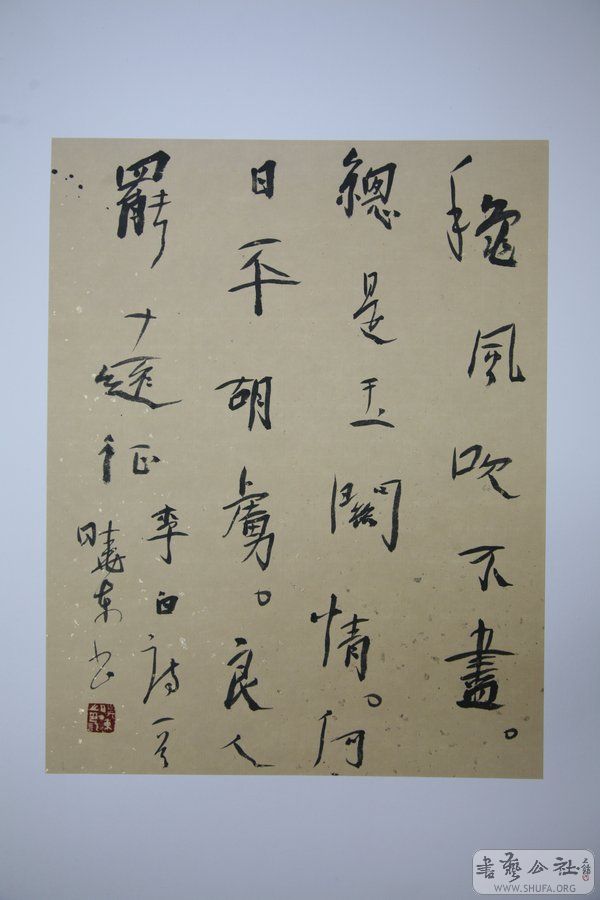 穐風吹不盡。
總是玉關情。何
日平胡虜。良人
罷遠征
李白詩一首
曉東书
書藝公社
WWW.SHUFA.ORG